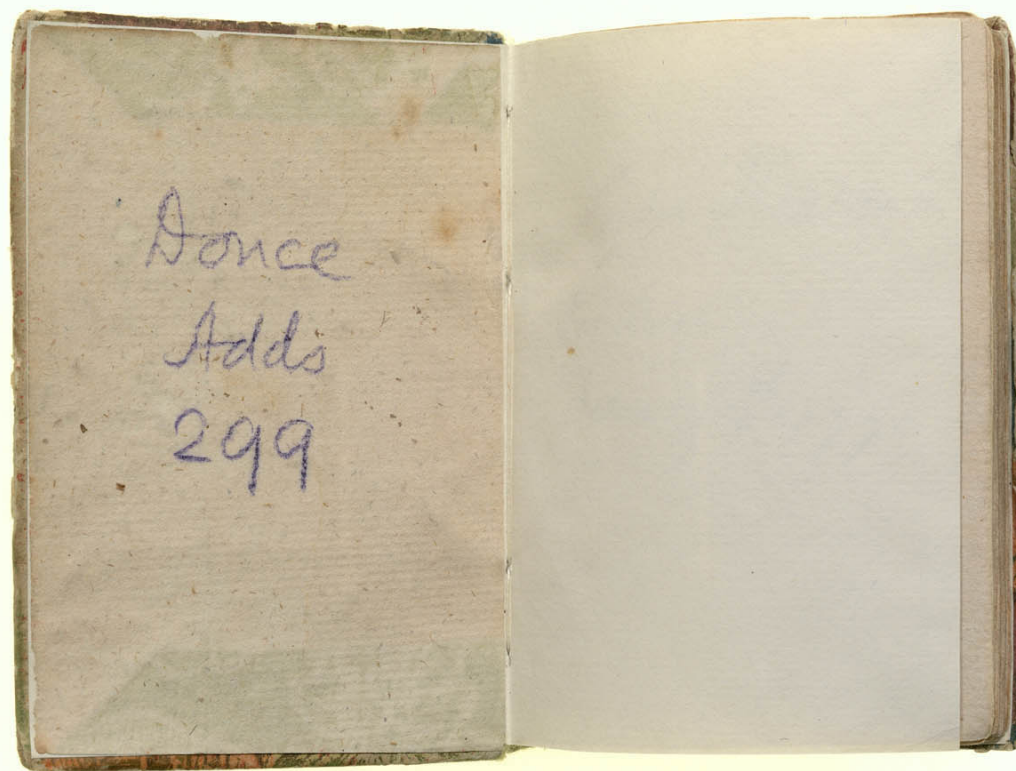 Douce
Adds
299